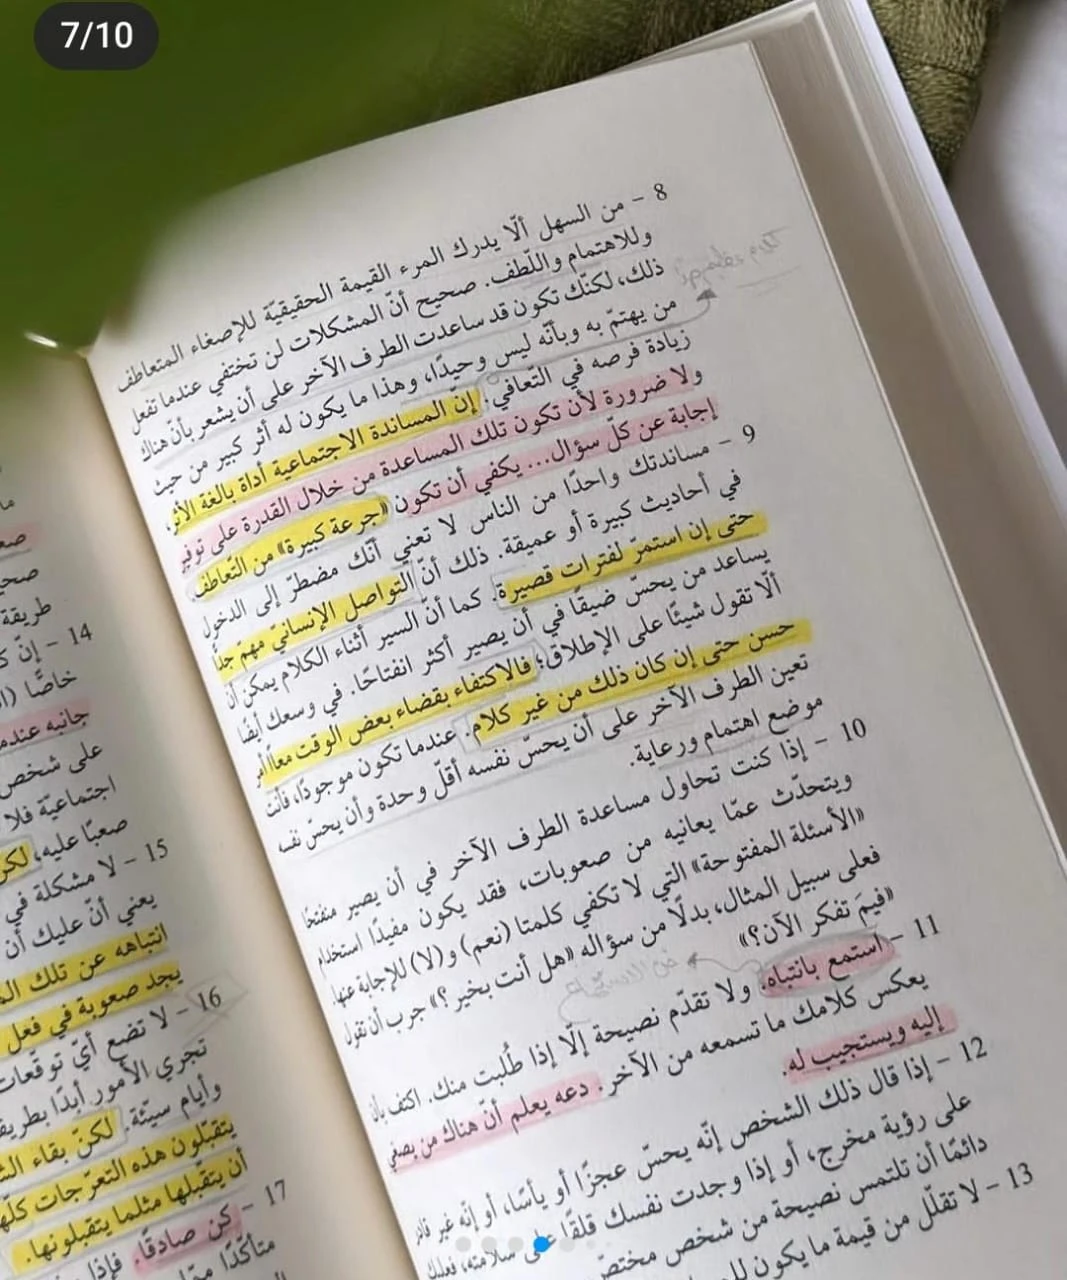 7/10
8 - من السهل ألّا يدرك المرء القيمة الحقيقيّة للإصغاء المتعاطف
وللاهتمام واللّطف. صحيح أنّ المشكلات لن تختفي عندما تفعل
ذلك، لكنّك تكون قد ساعدت الطرف الآخر على أن يشعر بأن هناك
من يهتمّ به وبأنّه ليس وحيدًا، وهذا ما يكون له أثر كبير من حيث
زيادة فرصه في التّعافي؛ إن المساندة الاجتماعية أداة بالغة الأثر،
ولا ضرورة لأن تكون تلك المساعدة من خلال القدرة على توفير
إجابة عن كلّ سؤال... يكفي أن تكون «جرعة كبيرة» من التّعاطف
9 - مساندتك واحدًا من الناس لا تعني أنّك مضطرّ إلى الدخول
في أحاديث كبيرة أو عميقة. ذلك أنّ التواصل الإنسانيّ مهمّ جدًّا
حتى إن استمرّ لفترات قصيرة. كما أنّ السير أثناء الكلام يمكن أن
يساعد من يحسّ ضيقًا في أن يصير أكثر انفتاحًا. في وسعك أيضًا
ألّا تقول شيئًا على الإطلاق؛ فالاكتفاء بقضاء بعض الوقت معًا أمر
حسن حتى إن كان ذلك من غير كلام. عندما تكون موجودًا، فأنت
تعين الطرف الآخر على أن يحسّ نفسه أقلّ وحدة وأن يحسّ نفسه
موضع اهتمام ورعاية.
10 - إذا كنت تحاول مساعدة الطرف الآخر في أن يصير منفتحًا
ويتحدّث عمّا يعانيه من صعوبات، فقد يكون مفيدًا استخدام
«الأسئلة المفتوحة» التي لا تكفي كلمتا (نعم) و(لا) للإجابة عنها.
فعلى سبيل المثال، بدلًا من سؤاله «هل أنت بخير؟» جرب أن تقول
«فيمَ تفكر الآن؟»
11 - استمع بانتباه. ولا تقدّم نصيحة إلّا إذا طُلبت منك. اكتف بأن
يعكس كلامك ما تسمعه من الآخر. دعه يعلم أنّ هناك من يصغي
إليه ويستجيب له.
12 - إذا قال ذلك الشخص إنّه يحسّ عجزًا أو يأسًا، أو إنّه غير قادر
على رؤية مخرج، أو إذا وجدت نفسك قلقًا على سلامته، فعليك
دائمًا أن تلتمس نصيحة من شخص مختصّ
13 - لا تقلّل من قيمة ما يكون
طريقة
14 - إنّ
خاصًّا
جانبه
على شخص
اجتماعيّة فلا
صعبًا عليه،
15 - لا مشكلة في
يعني أنّ عليك أن
انتباهه عن تلك
يجد صعوبة في فعل
16 - لا تضع أيّ توقّعات
تجري الأمور أبدًا
وأيام سيّئة. لكنّ بقاء
يتقبّلون هذه التعرّجات
أن يتقبلها مثلما يتقبلونها.
17 - كن صادقًا. فإذا
متأكّدًا